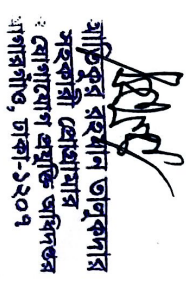 শফিকুর রহমান তালুকদার
সহকারী প্রোগ্রামার
যোগাযোগ প্রযুক্তি অধিদপ্তর
আগারগাঁও, ঢাকা-১২০৭